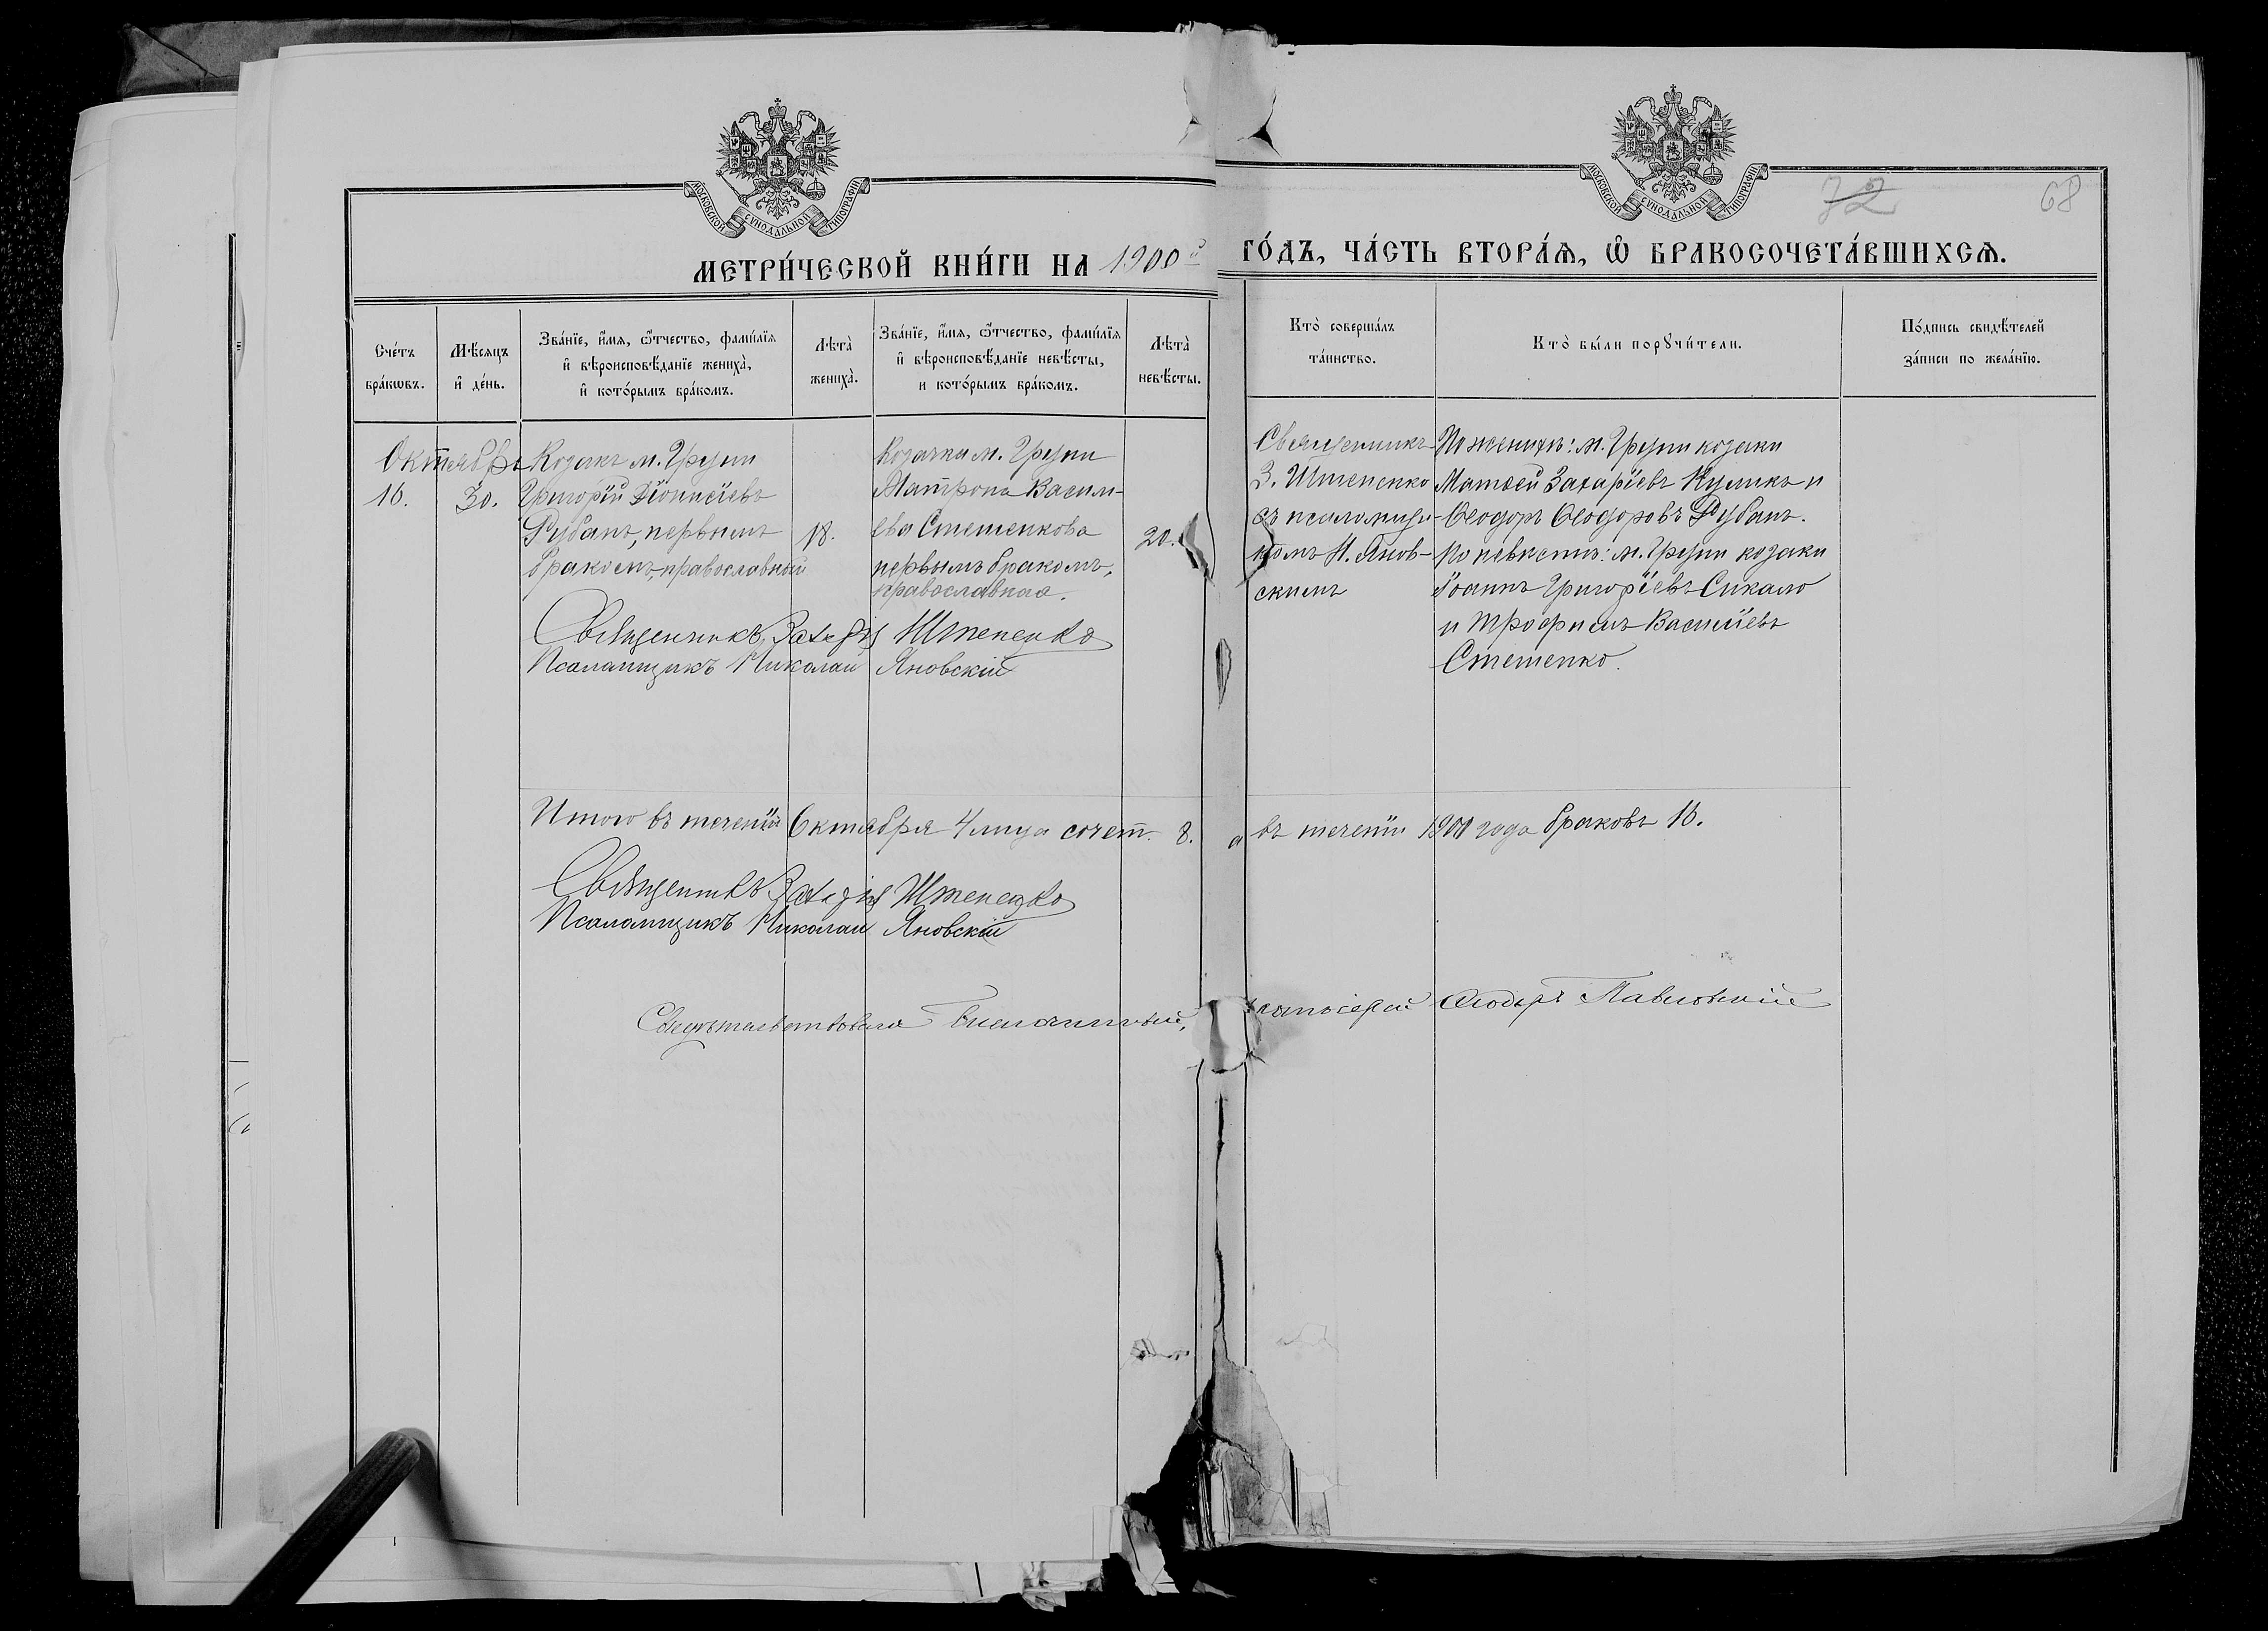 МОСКОВСКОЙ СѴНОДАЛЬНОЙ ТИПОГРАФІИ.
МОСКОВСКОЙ СѴНОДАЛЬНОЙ ТИПОГРАФІИ.
72
68
МЕТРИ́ЧЕСКОЙ КНИ́ГИ НА 1900й ГО́ДЪ, ЧА́СТЬ ВТОРА́Ѧ, Ѽ БРАКОСОЧЕТА́ВШИХСѦ.
Сче́тъ
бра́кѡвъ.
Мѣ́сѧцъ
и҆ де́нь.
Зва́нїе, и҆́мѧ, ѻ҆́тчество, фами́лїѧ
и҆ вѣроисповѣ́данїе жениха̀,
и҆ кото́рымъ бра́комъ.
Лѣта̀
жениха̀.
Зва́нїе, и҆́мѧ, ѻ҆́тчество, фами́лїѧ
и҆ вѣроисповѣ́данїе невѣ́сты,
и кото́рымъ бра́комъ.
Лѣта̀
невѣ́сты.
Кто̀ соверша́лъ
та́инство.
Кто̀ бы́ли порꙋчи́тели.
По́дпись свидѣ́телей
за́писи по жела́нїю.
Октябрь
16.
30.
Козакъ м. Груни
Григорій Діонисіевъ
Рубанъ, первымъ
бракомъ, православный
18.
Козачка м. Груни
Матрона Васили-
ева Стешенкова
первымъ бракомъ,
православная.
20.
Священникъ
З. Штепенко
съ псаломщи-
комъ Н. Янов-
скимъ
По женихѣ: м. Груни козаки
Матѳей Захаріевъ Куликъ и
Ѳеодоръ Ѳеодоровъ Рубанъ.
По невѣстѣ: м. Груни козаки
Іоаннъ Григоріевъ Сикало
и Трофимъ Василіевъ
Стешенко.
Священникъ Захарія Штепенко
Псаломщикъ Николай Яновскій
Итого въ теченіи Октября м-ца сочет. 8. а въ теченіи 1900 года браковъ 16.
Священникъ Захарія Штепенко
Псаломщикъ Николай Яновскій
Свидѣтельствовалъ Благочинный, протоіерей Ѳеодоръ Павловскій